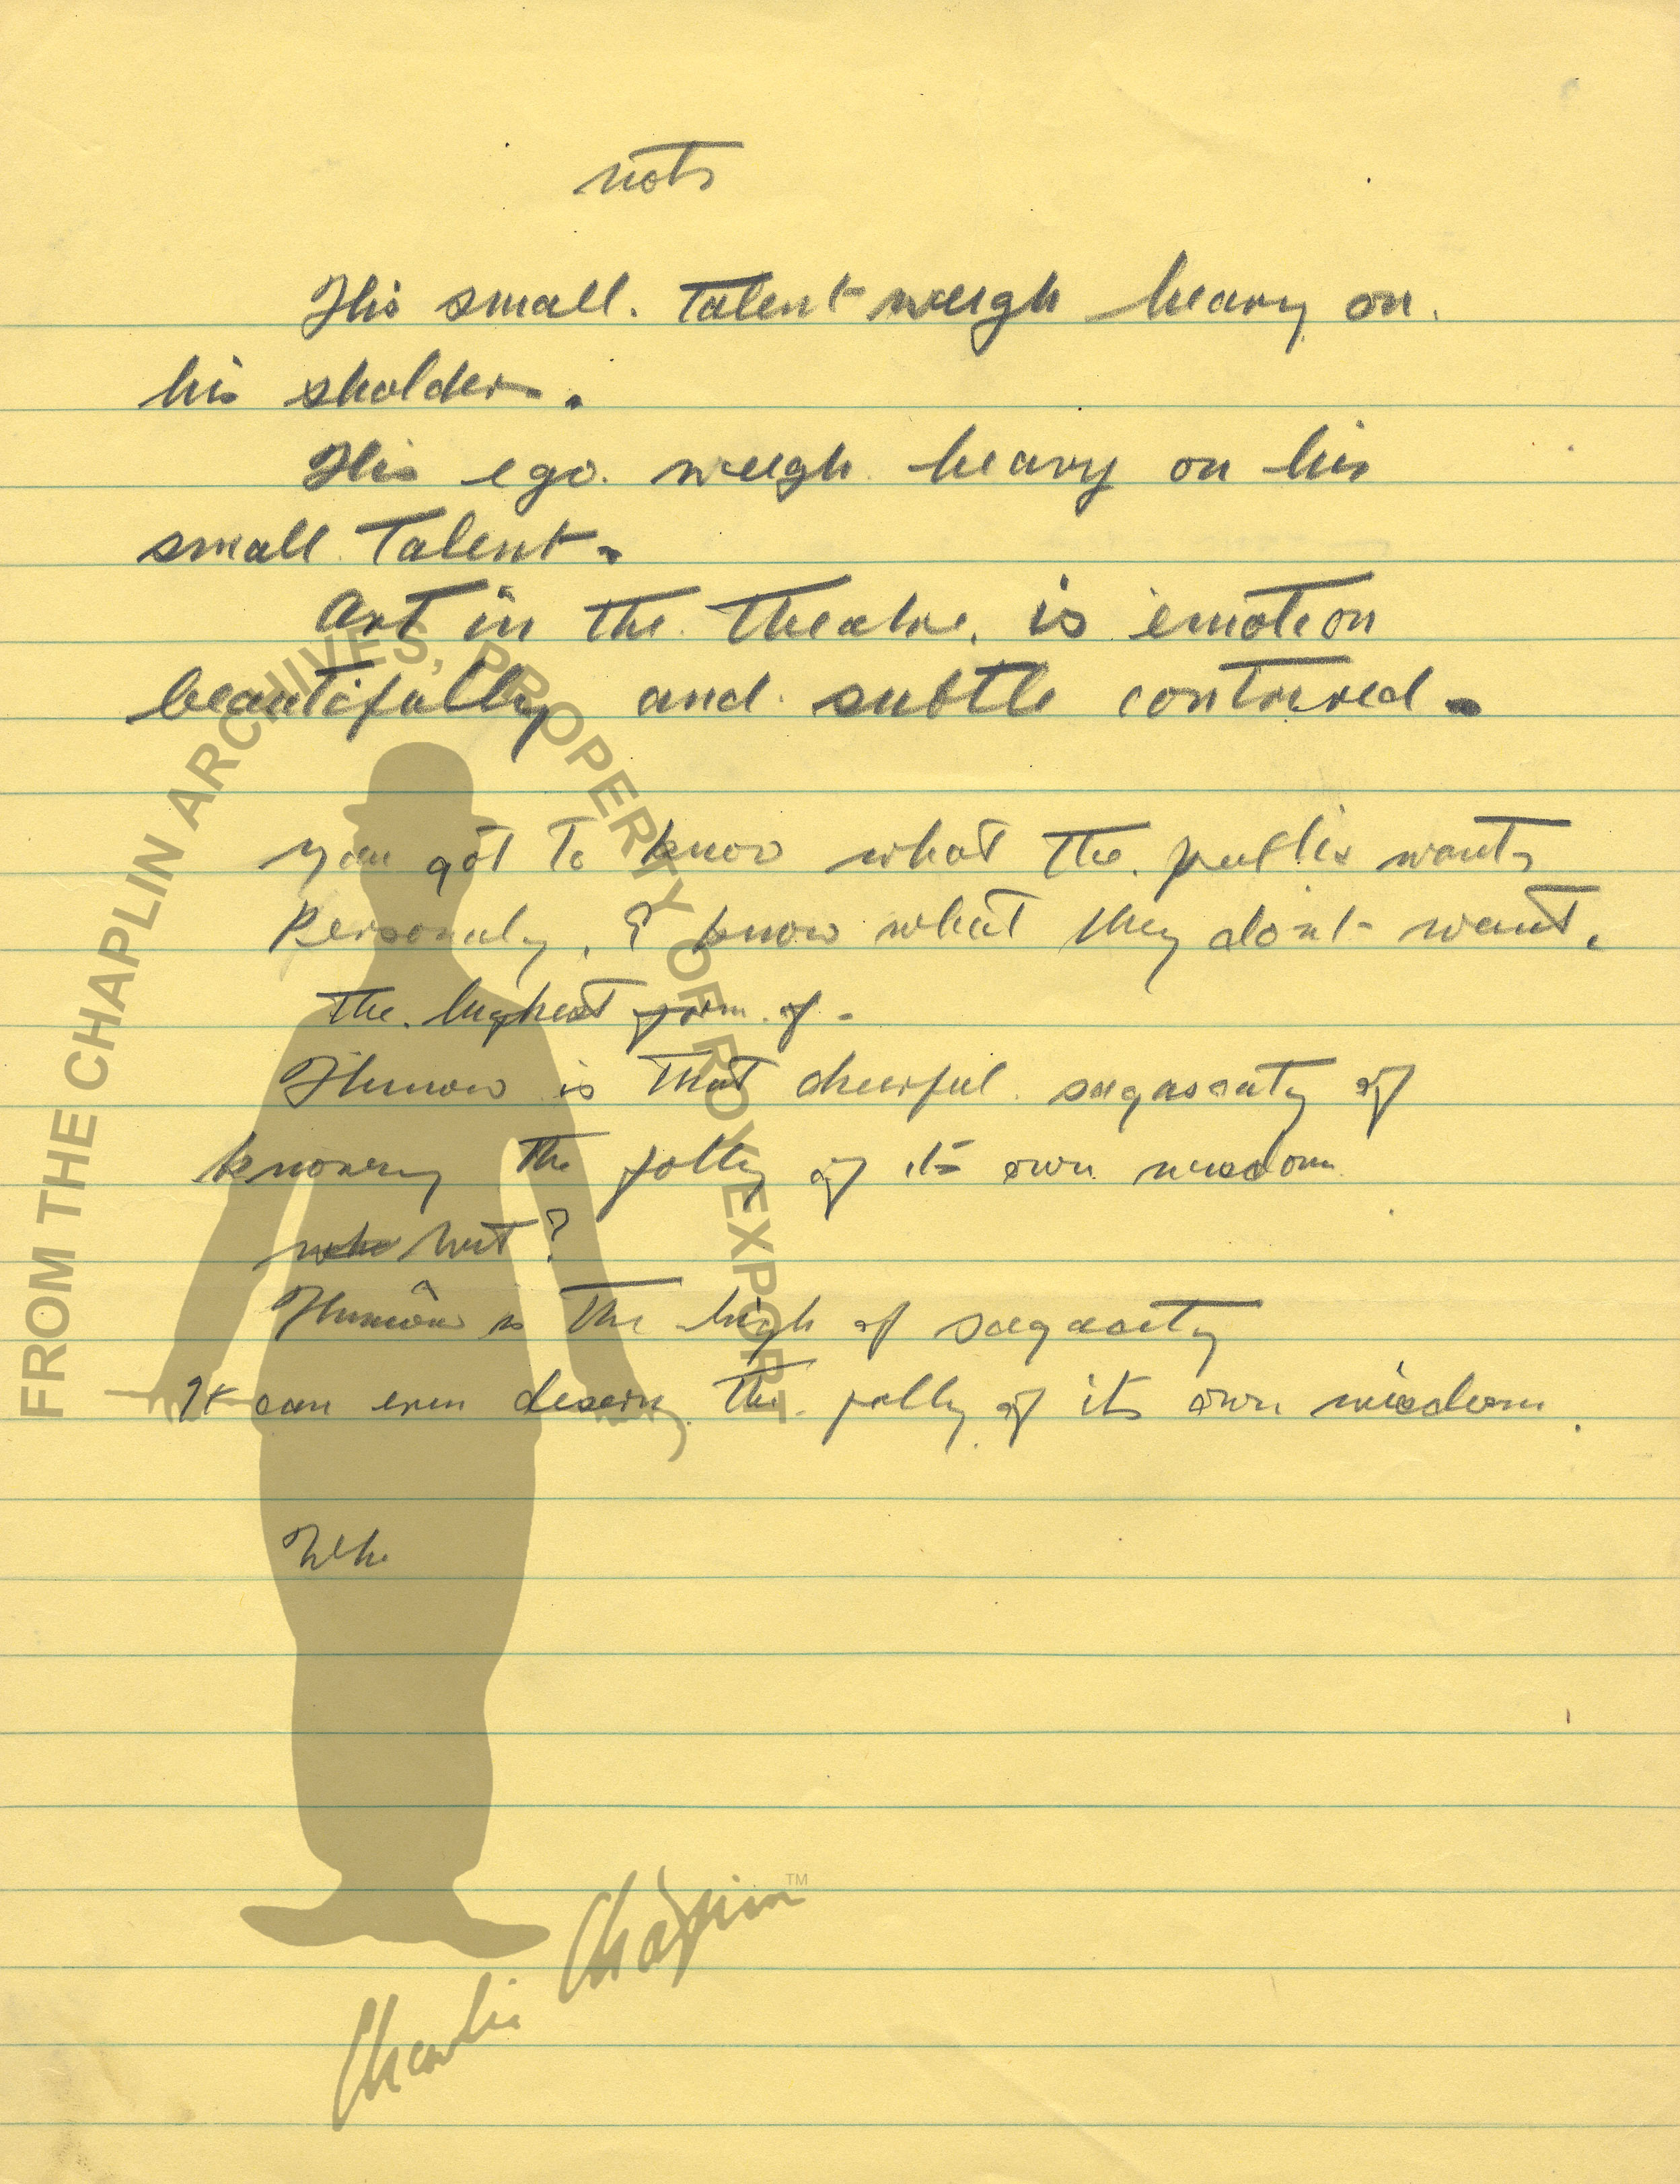 nots
His small. Talent weigh heavy on.
his sholders.
His ego. weigh. heavy on his
small. Talent.
Art in the. theatre. is emotion
beautifully and. subtle contrived.
you got to know what the. public wants
Personaly, I know what they don't want.
The. highest form. of -
Humour is that cheerful. sagascaty of
knowing the folly of its own wisdom.
who wit?
Humour is the high of sagacity
It can even descern the. folly of its own wisdom.
Who
FROM THE CHAPLIN ARCHIVES, PROPERTY OF ROY EXPORT
Charlie Chaplin ™